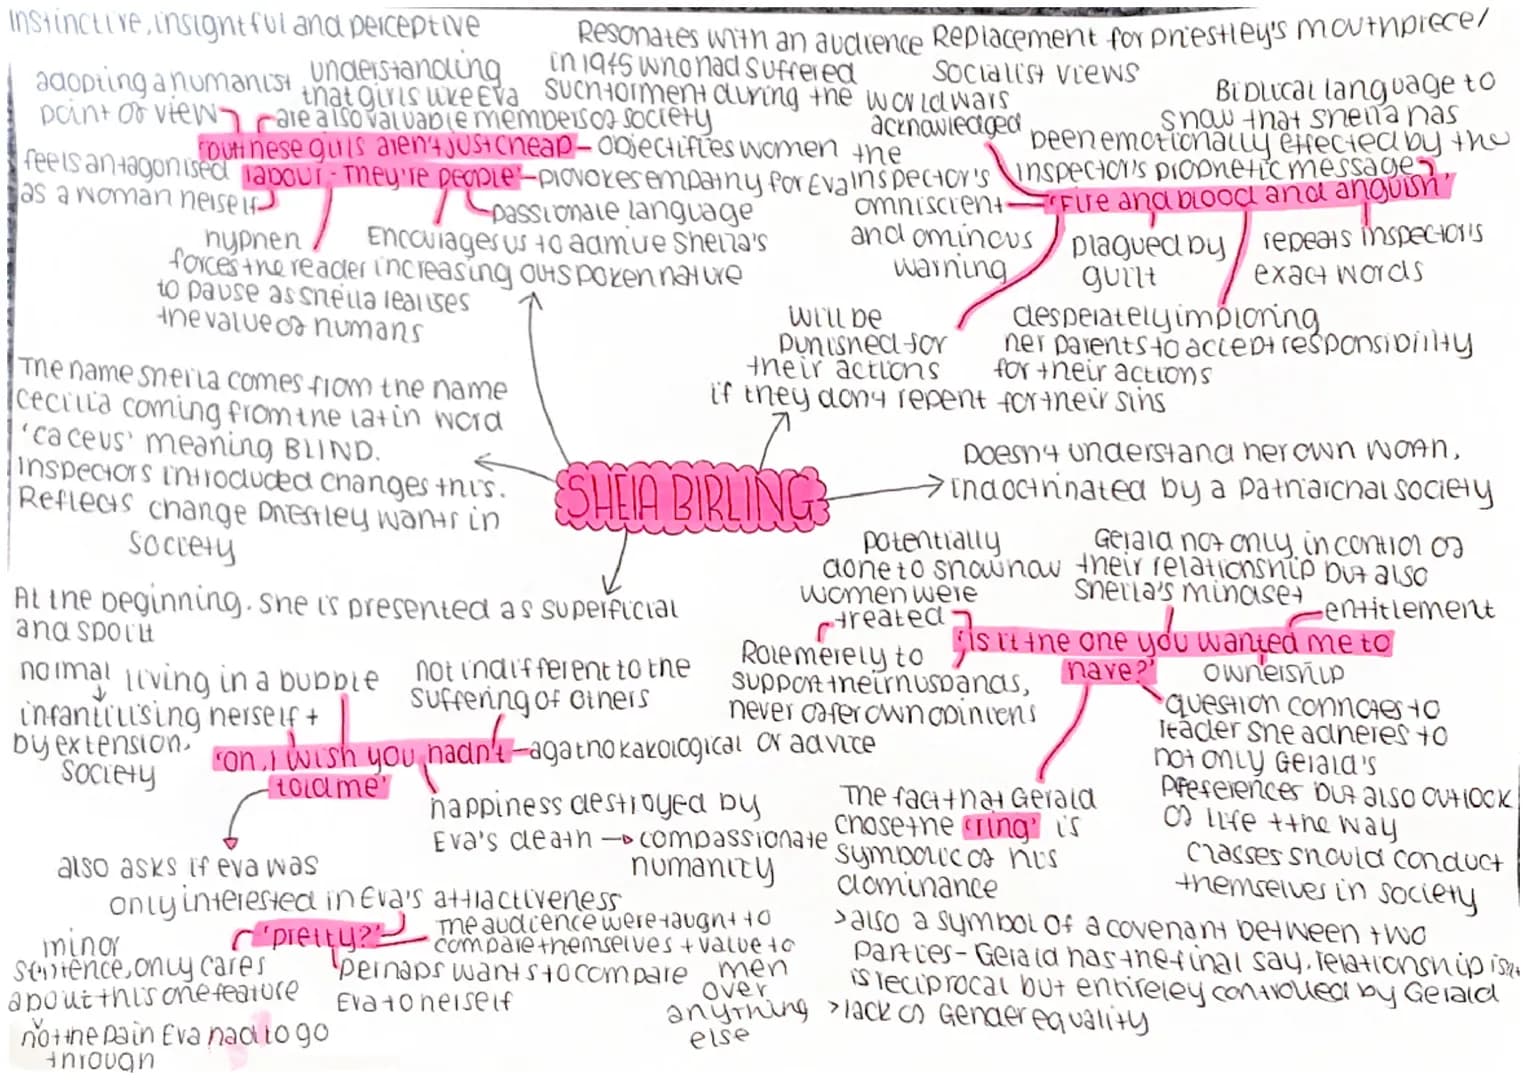 instinctive, insightful and perceptive
adopting a humanist
point of view
understanding
that girls like Eva
are also valuable members of society
'but these girls aren't just cheap
labour - They're people'
feels antagonised
as a woman herself
objectifies women
provokes empathy for Eva
passionate language
hyphen
forces the reader
to pause as sheila realises
the value of humans
Encourages us to admire Sheila's
increasing outspoken nature
Resonates with an audience
in 1945 who had suffered
such torment during the
world wars
Replacement for priestley's mouthpiece/
socialist views
acknowledged
the
inspector's
omniscient
and ominous
warning
Biblical language to
show that sheila has
been emotionally effected by the
inspector's prophetic message
'Fire and blood and anguish'
plagued by
guilt
repeats inspector's
exact words
will be
punished for
their actions
if they don't repent for their sins
desperately imploring
her parents to accept responsibility
for their actions
The name sheila comes from the name
cecilia coming from the latin word
'caceus' meaning BLIND.
inspectors introduced changes this.
Reflects change priestley wants in
society
SHEIA BIRLING
Doesn't understand her own worth,
indoctrinated by a patriarchal society
At the beginning. she is presented as superficial
and spoilt
normal
infantilising herself +
by extension,
society
living in a bubble
not indifferent to the
suffering of others
'oh, I wish you hadn't
told me'
agathokakological or advice
happiness destroyed by
Eva's death → compassionate
humanity
also asks if eva was
only interested in Eva's attractiveness
'pretty?'
minor
sentence, only cares
about this one feature
not the pain Eva had to go
through
perhaps wants to compare
Eva to herself
The audience were taught to
compare themselves + value to
men
over
anything
else
potentially
done to show how
women were
treated
Gerald not only in control of
their relationship but also
Sheila's mindset
entitlement
'is it the one you wanted me to
have?'
ownership
Role merely to
support their husbands,
never offer own opinions
question connotes to
leader she adheres to
not only Gerald's
preferences but also outlook
of life + the way
classes should conduct
themselves in society
The fact that Gerald
chose the 'ring' is
symbolic of his
dominance
>also a symbol of a covenant between two
parties - Gerald has the final say. relationship isnt
is reciprocal but entireley controlled by Gerald
>lack of Gender equality